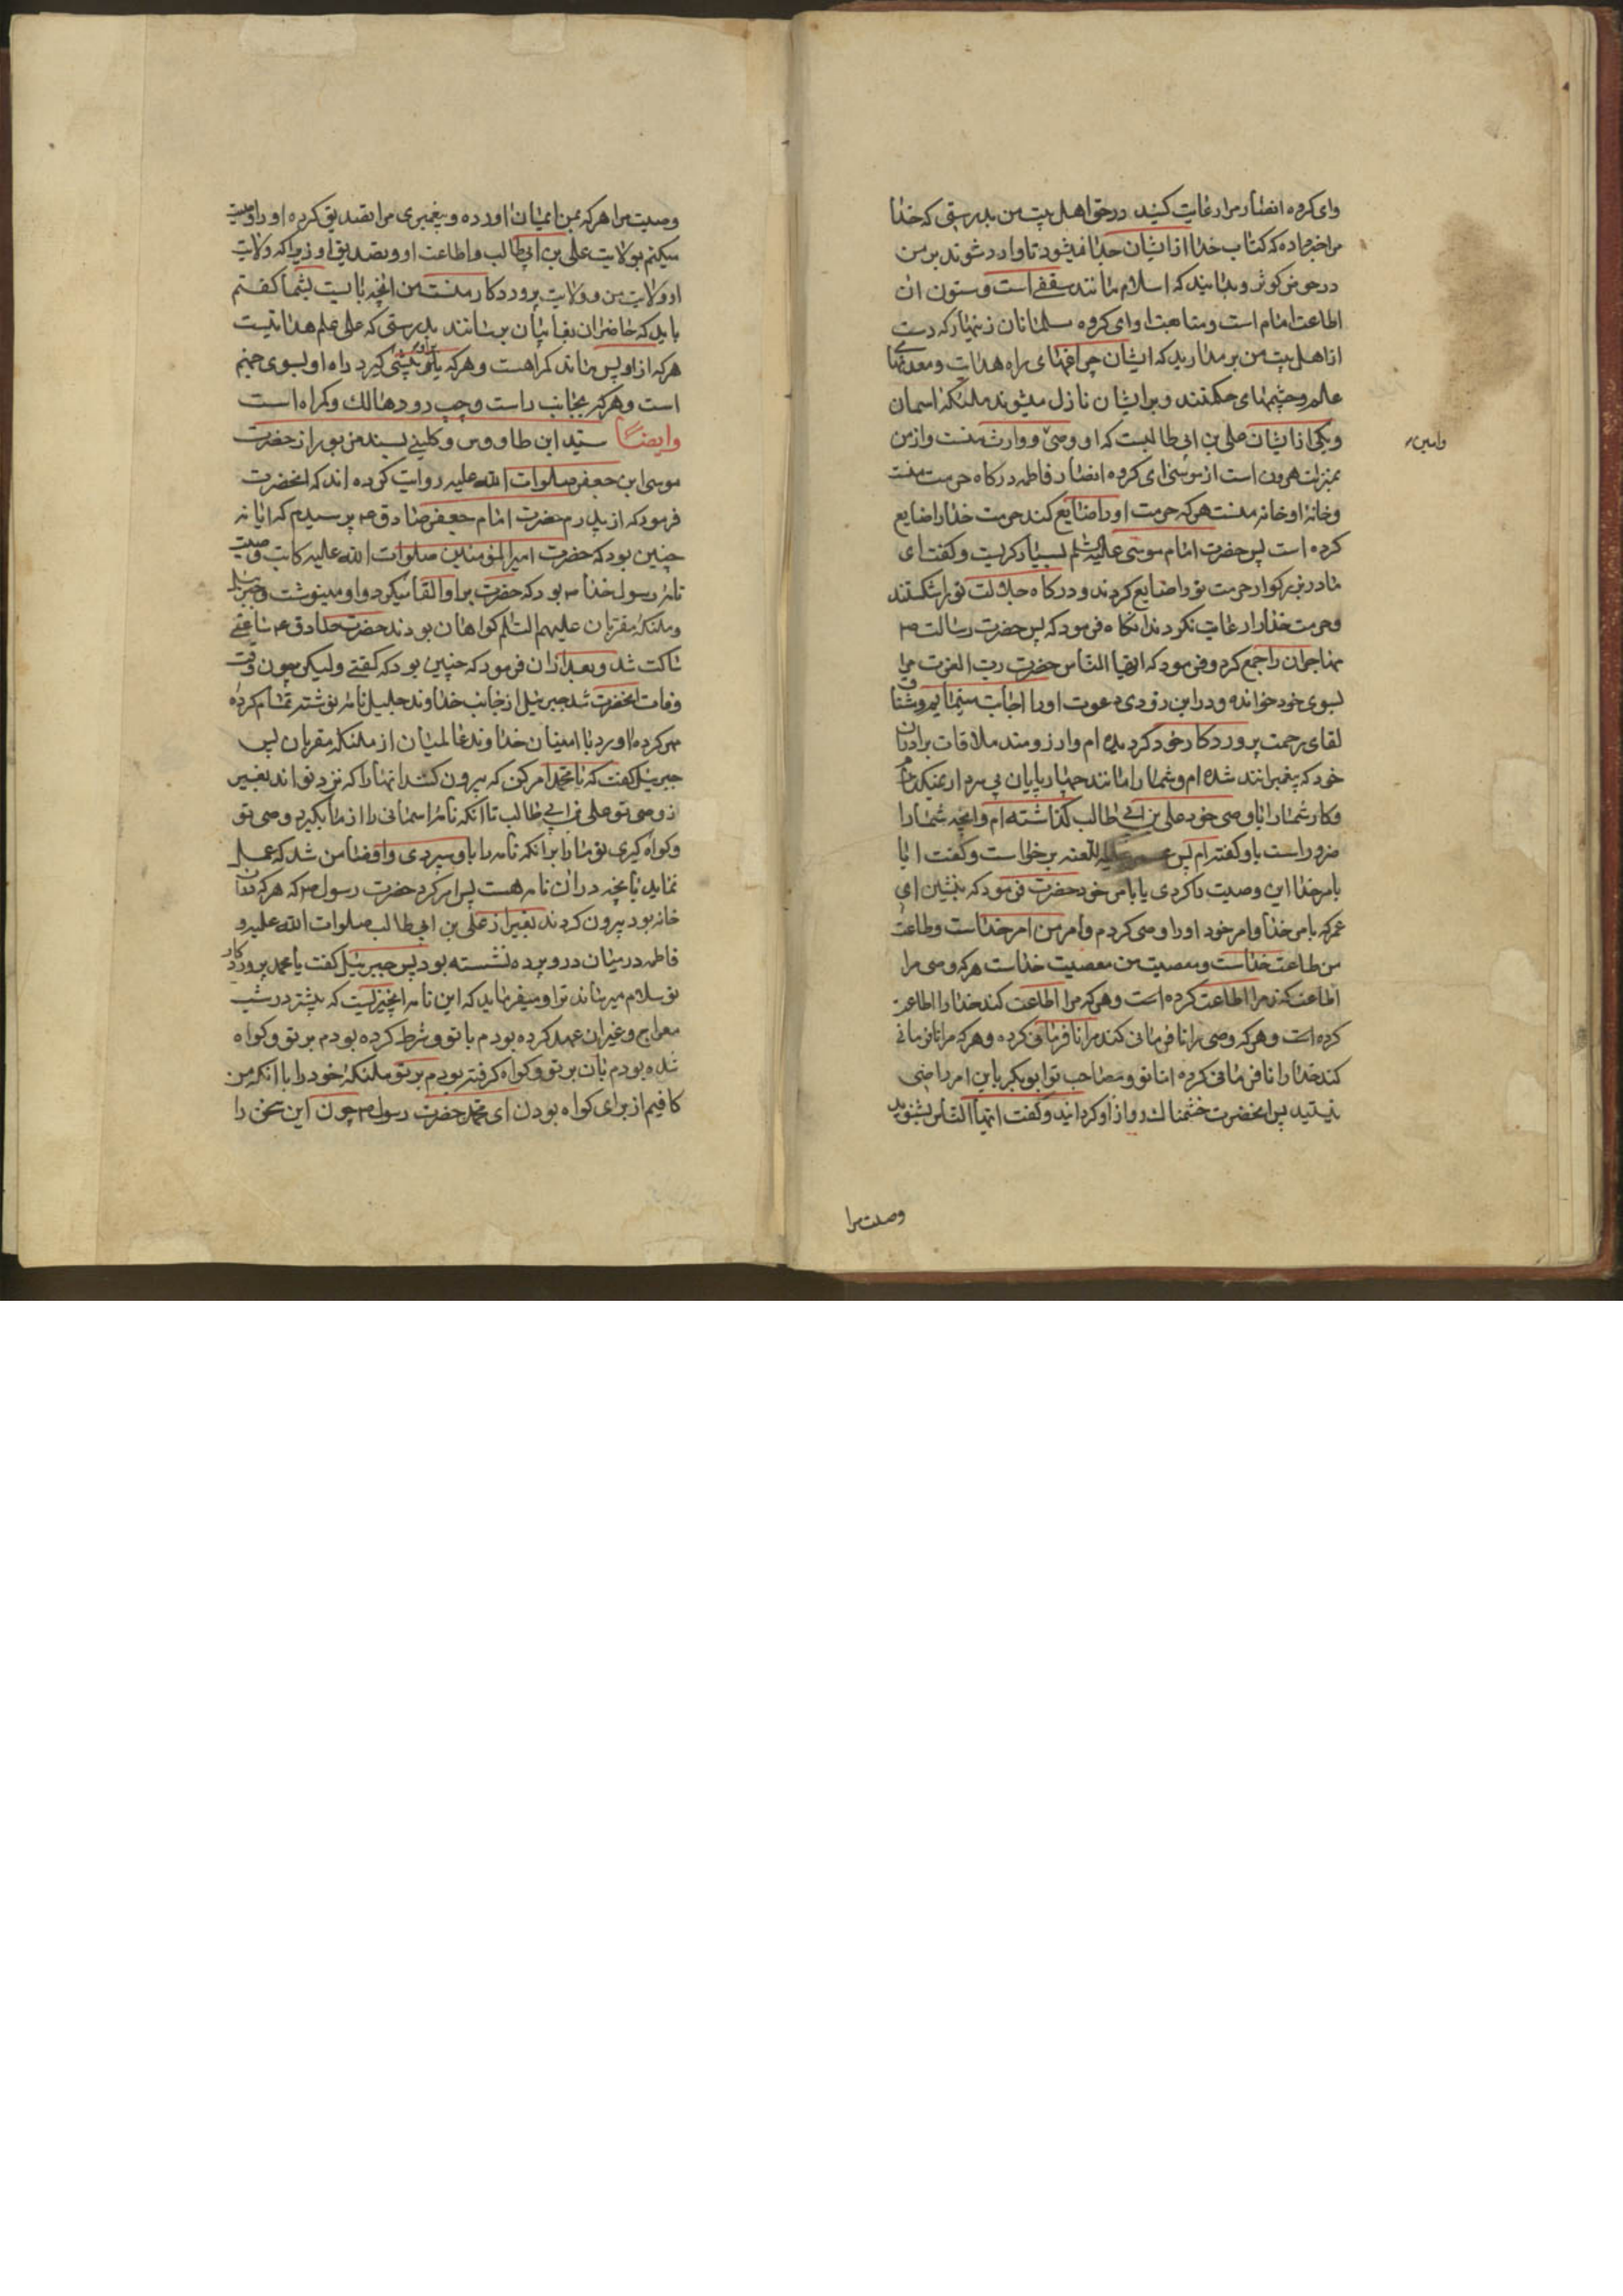 وای کروه انصار مرا رغایت کنید در حق اهل بیت من بدرستی که خدا
مرا خبر داده که کتاب خدا از ایشان جدا نمیشود تا وارد شوند بر من
در حوض کوثر و بدانید که اسلام مانند سقفی است و ستون ان
اطاعت امام است و متابعت او ای کروه مسلمانان زینهار که دست
از اهل بیت من بر مدارید که ایشان چراغهای راه هدایت و معدنهای
علم و چشمهای حکمتند و بر ایشان نازل میشوند ملئکهٔ اسمان
و یکی از ایشان علی بن ابی طالبست که او وصیّ و وارث منست و از من
وامین
بمنزلت هرون است از موسی ای کروه انصار فاطمه درکاه حرمت منست
و خانهٔ او خانه منست هر که حرمت او را ضایع کند حرمت خدا را ضایع
کرده است پس حضرت امام موسی علیه السلم بسیار کریست و کفت ای
مادر بزرکوار حرمت تو را ضایع کردند و درکاه جلالت تو را شکستند
و حرمت خدا را رعایت نکردند انکاه فرمود که پس حضرت رسالت ص
مهاجران را جمع کرد و فرمود که ایها الناس حضرت رب العزت مرا
بسوی خود خوانده و در این زودی دعوت او را اجابت مینمایم و مشتاق
لقای رحمت پروردکار خود کردیده ام و ارزومند ملاقات برادران
خود که پیغمبرانند شده ام و شما را مانند چهار پایان بی سردار نمیکذارم
و کار شما را با وصی خود علی بن ابی طالب کذاشته ام و انچه شما را
ضرور است باو کفته ام پس عمر علیه اللعنه برخواست و کفت ایا
بامر خدا این وصیت را کردی یا بامر خود حضرت فرمود که بنشین ای
عمر که بامر خدا و امر خود او را وصی کردم و امر من امر خداست و طاعت
من طاعت خداست و معصیت من معصیت خداست هر که وصی مرا
اطاعت کند مرا اطاعت کرده است و هر که مرا اطاعت کند خدا را اطاعت
کرده است و هر که وصی مرا نافرمانی کند مرا نافرمانی کرده و هر که مرا نافرمانی
کند خدا را نافرمانی کرده اما تو و مصاحب تو ابو بکر باین امر راضی
نیستید پس انحضرت خشمناک رو از او کردانید و کفت ایها الناس بشنوید
وصیت مرا
وصیت مرا هر که بمن ایمان اورده و پیغمبری مرا تصدیق کرده او را وصیت
میکنم بولایت علی بن ابی طالب و اطاعت او و تصدیق او زیرا که ولایت
او ولایت من و ولایت پروردکار منست من انچه بایست بشما کفتم
باید که حاضران بغایبان برسانند بدرستی که علی علم هدایتست
هر که از او پس ماند کمراهست و هر که باو پیشی کیرد راه او بسوی جهنم
است و هر که بجانب راست و چپ رود هالک و کمراه است
وایضاً سید ابن طاووس و کلینی بسند مزبور از حضرت
موسی ابن جعفر صلوات الله علیه روایت کرده اند که انحضرت
فرمود که از پدرم حضرت امام جعفر صادق ع پرسیدم که ایا نه
چنین بود که حضرت امیر المؤمنین صلوات الله علیه کاتب وصیت
نامهٔ رسول خدا ص بود که حضرت بر او القا میکرد و او مینوشت و جبرئیل
و ملئکه مقربان علیهم السلم کواهان بودند حضرت صادق ع ساعتی
ساکت شد و بعد از ان فرمود که چنین بود که کفتی ولیکن چون وقت
وفات انحضرت شد جبرئیل از جانب خداوند جلیل نامهٔ نوشته تمام کرده
مهر کرده اورد با امینان خداوند عالمیان از ملئکه مقربان پس
جبرئیل کفت که یا محمد امر کن که بیرون کنند انها را که نزد تو اند بغیر
از وصی تو علی بن ابی طالب تا انکه نامهٔ اسمانی را از ما بکیرد وصی تو
و کواه کیری تو ما را بر انکه نامه را باو سپردی و او ضامن شد که عمل
نماید بانچه در ان نامه هست پس امر کرد حضرت رسول ص که هر که در ان
خانه بود بیرون کردند بغیر از علی بن ابی طالب صلوات الله علیه و
فاطمه در میان در و پرده نشسته بود پس جبرئیل کفت یا محمد پروردکار
تو سلام میرساند ترا و میفرماید که این نامه انچیزیست که پیشتر در شب
معراج و غیر ان عهد کرده بودم با تو و شرط کرده بودم بر تو و کواه
شده بودم بان بر تو و کواه کرفته بودم بر تو ملئکهٔ خود را با انکه من
کافیم از برای کواه بودن ای محمد حضرت رسول ص چون این سخن را